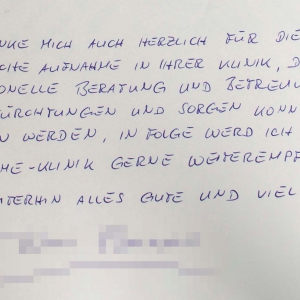 NKE MICH AUCH HERZLICH FÜR DIE
CHE AUFNAHME IN IHRER KLINIK, D
ONELLE BERATUNG UND BETREU
ÜRCHTUNGEN UND SORGEN KONN
N WERDEN, IN FOLGE WERD ICH
HE-KLINIK GERNE WEITEREMPF
ITERHIN ALLES GUTE UND VIEL